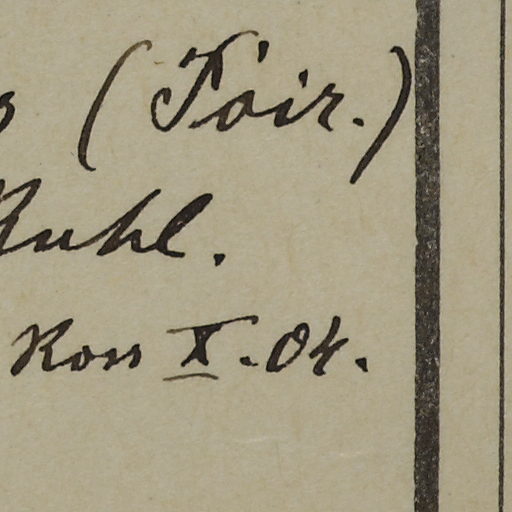 (Foir.)
Kuhl.
Ross X. 04.